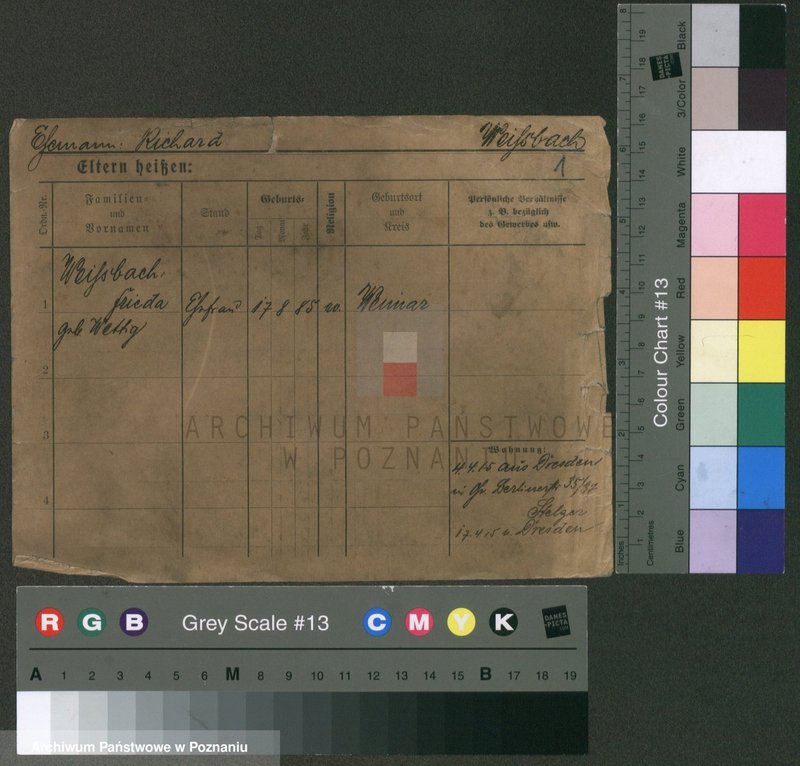 Ehemann: Richard Weißbach
Eltern heißen: 1
Ordn.-Nr.
Familien- und Vornamen
Stand
Geburts-
Tag
Monat
Jahr
Religion
Geburtsort und Kreis
Persönliche Verhältnisse
z. B. bezüglich
des Gewerbes usw.
1
Weißbach,
Frieda
geb. Wettig
Ehefrau 17 8 85 Weimar
2
3
4
ARCHIWUM PAŃSTWOWE
W POZNANIU
Wohnung:
4.4.15 aus Dresden
in Gr. Berlinerstr
Stelzer
17.4.15 n. Dresden
Inches
1 2 3 4 5 6 7 8
Centimetres
1 2 3 4 5 6 7 8 9 10 11 12 13 14 15 16 17 18 19
Colour Chart #13
Blue
Cyan
Green
Yellow
Red
Magenta
White
3/Color
Black
DANES
-PICTA
R G B Grey Scale #13 C M Y K
DANES
-PICTA
.COM
A 1 2 3 4 5 6 M 8 9 10 11 12 13 14 15 B 17 18 19
Archiwum Państwowe w Poznaniu